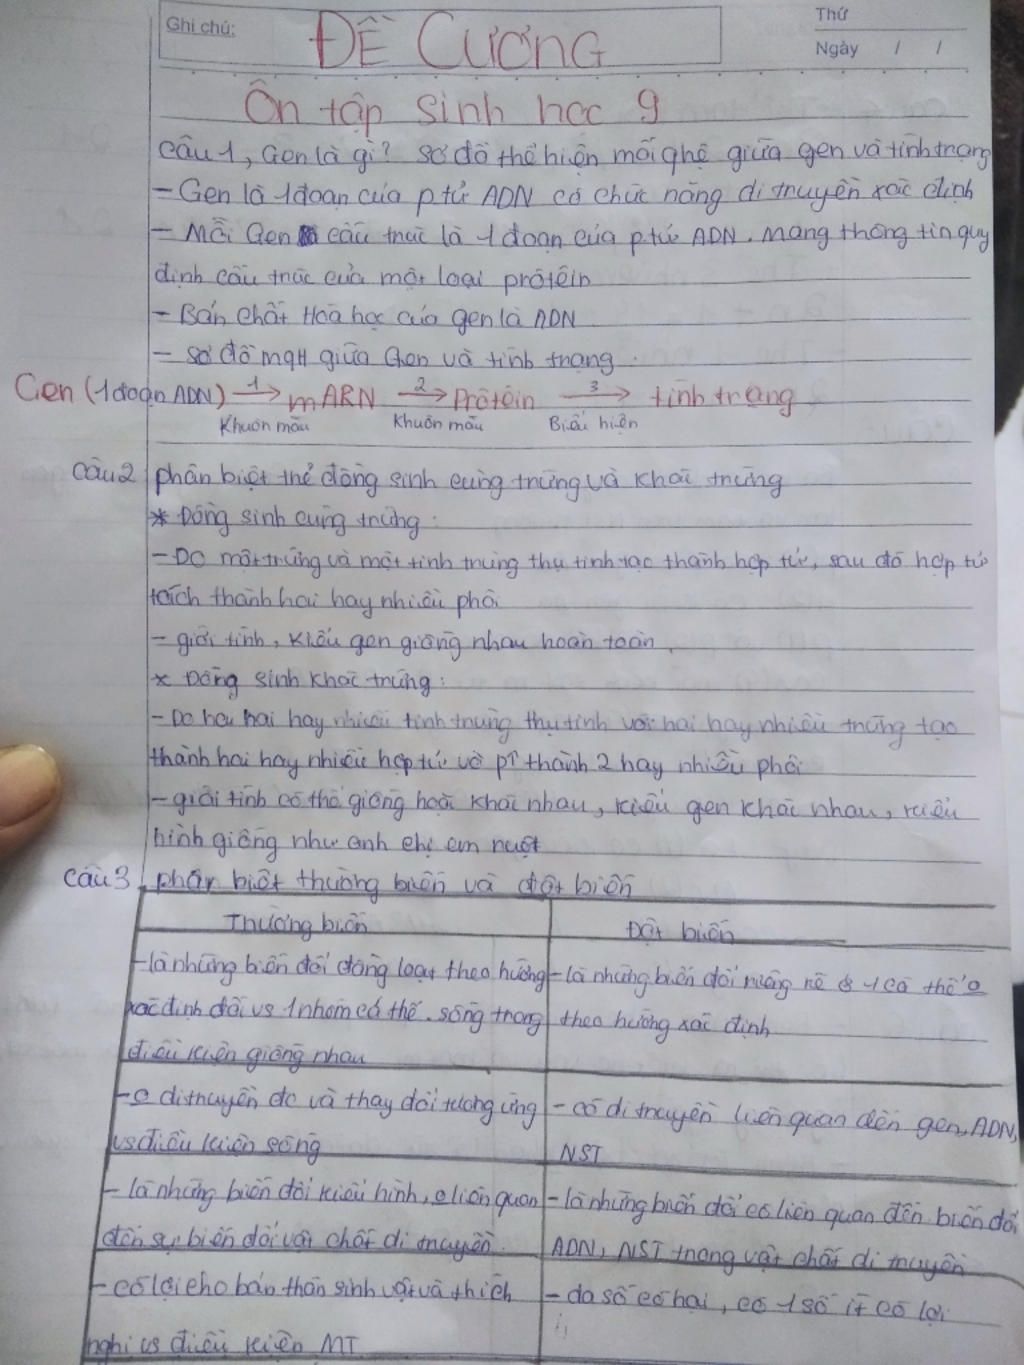 Ghi chú:
Thứ
Ngày / /
ĐỀ CƯƠNG
Ôn tập sinh học 9
Câu 1, Gen là gì? sơ đồ thể hiện mối qhệ giữa gen và tính trạng
- Gen là 1 đoạn của p tử ADN có chức năng di truyền xác định
- Mỗi Gen cấu trúc là 1 đoạn của p tử ADN. Mang thông tin quy
định cấu trúc của một loại prôtêin
- Bản chất Hoá học của gen là ADN
- Sơ đồ mqH giữa Gen và tính trạng.
Gen (1 đoạn ADN) —1→ mARN —2→ Prôtêin —3→ tính trạng
Khuôn mẫu Khuôn mẫu Biểu hiện
Câu 2 phân biệt trẻ đồng sinh cùng trứng và khác trứng
* Đồng sinh cùng trứng:
- Do một trứng và một tinh trùng thụ tinh tạo thành hợp tử, sau đó hợp tử
tách thành hai hay nhiều phôi
- giới tính, kiểu gen giống nhau hoàn toàn.
* Đồng sinh khác trứng:
- Do hai hay nhiều tinh trùng thụ tinh với hai hay nhiều trứng tạo
thành hai hay nhiều hợp tử và pT thành 2 hay nhiều phôi
- giới tính có thể giống hoặc khác nhau, kiểu gen khác nhau, kiểu
hình giống như anh chị em ruột
Câu 3 phân biệt thường biến và đột biến
Thường biến
Đột biến
- là những biến đổi đồng loạt theo hướng
xác định đối vs 1 nhóm cá thể. sống trong
điều kiện giống nhau
- là những biến đổi riêng rẽ ở 1 cá thể o
theo hướng xác định
- o di truyền đc và thay đổi tương ứng
vs điều kiện sống
- có di truyền liên quan đến gen, ADN,
NST
- là những biến đổi kiểu hình, o liên quan
đến sự biến đổi vật chất di truyền.
- là những biến đổi có liên quan đến biến đổi
ADN, NST trong vật chất di truyền
- có lợi cho bản thân sinh vật và thích
nghi vs điều kiện MT
- đa số có hại, có 1 số ít có lợi